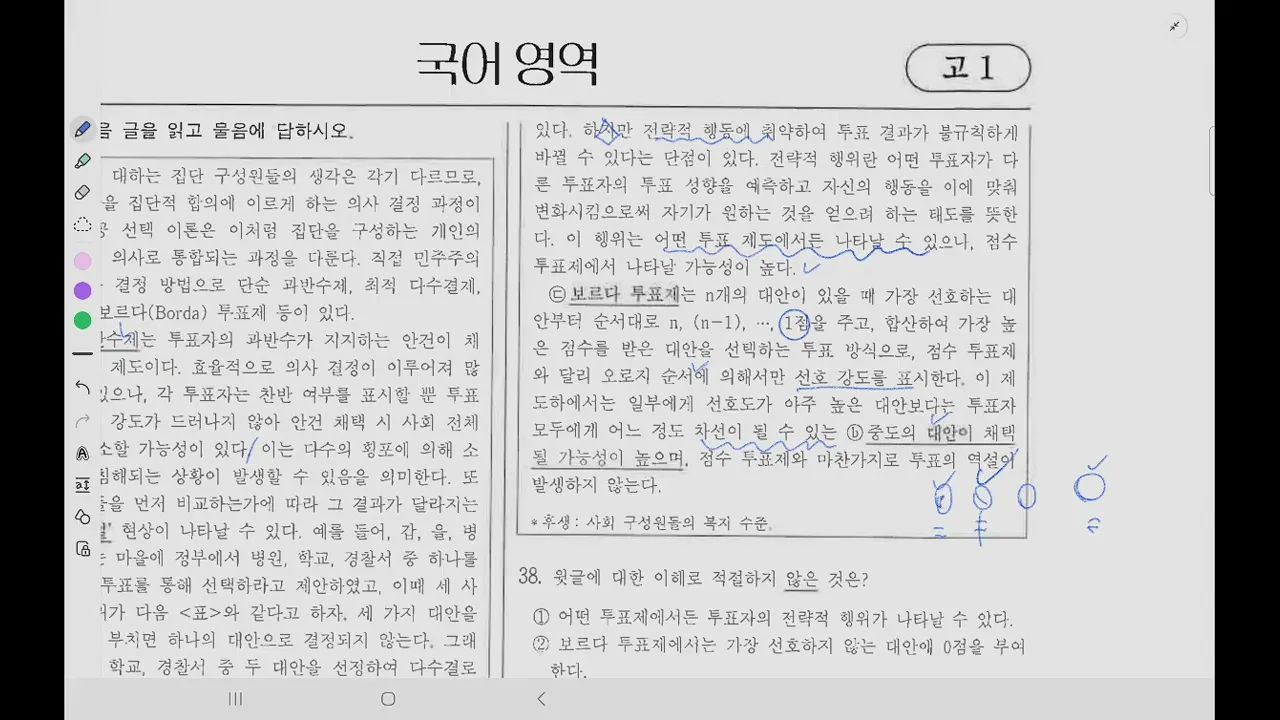 국어 영역
고 1
음 글을 읽고 물음에 답하시오.
대하는 집단 구성원들의 생각은 각기 다르므로,
을 집단적 합의에 이르게 하는 의사 결정 과정이
공 선택 이론은 이처럼 집단을 구성하는 개인의
의사로 통합되는 과정을 다룬다. 직접 민주주의
결정 방법으로 단순 과반수제, 최적 다수결제,
보르다(Borda) 투표제 등이 있다.
반수제는 투표자의 과반수가 지지하는 안건이 채
제도이다. 효율적으로 의사 결정이 이루어져 많
있으나, 각 투표자는 찬반 여부를 표시할 뿐 투표
강도가 드러나지 않아 안건 채택 시 사회 전체
소할 가능성이 있다. 이는 다수의 횡포에 의해 소
침해되는 상황이 발생할 수 있음을 의미한다. 또
들을 먼저 비교하는가에 따라 그 결과가 달라지는
현상이 나타날 수 있다. 예를 들어, 갑, 을, 병
는 마을에 정부에서 병원, 학교, 경찰서 중 하나를
투표를 통해 선택하라고 제안하였고, 이때 세 사
가 다음 <표>와 같다고 하자. 세 가지 대안을
부치면 하나의 대안으로 결정되지 않는다. 그래
학교, 경찰서 중 두 대안을 선정하여 다수결로
있다. 하지만 전략적 행동에 취약하여 투표 결과가 불규칙하게
바뀔 수 있다는 단점이 있다. 전략적 행위란 어떤 투표자가 다
른 투표자의 투표 성향을 예측하고 자신의 행동을 이에 맞춰
변화시킴으로써 자기가 원하는 것을 얻으려 하는 태도를 뜻한
다. 이 행위는 어떤 투표 제도에서든 나타날 수 있으나, 점수
투표제에서 나타날 가능성이 높다.
㉢보르다 투표제는 n개의 대안이 있을 때 가장 선호하는 대
안부터 순서대로 n, (n-1), …, 1점을 주고, 합산하여 가장 높
은 점수를 받은 대안을 선택하는 투표 방식으로, 점수 투표제
와 달리 오로지 순서에 의해서만 선호 강도를 표시한다. 이 제
도하에서는 일부에게 선호도가 아주 높은 대안보다는 투표자
모두에게 어느 정도 차선이 될 수 있는 ⓑ중도의 대안이 채택
될 가능성이 높으며, 점수 투표제와 마찬가지로 투표의 역설이
발생하지 않는다.
*후생: 사회 구성원들의 복지 수준.
38. 윗글에 대한 이해로 적절하지 않은 것은?
① 어떤 투표제에서든 투표자의 전략적 행위가 나타날 수 있다.
② 보르다 투표제에서는 가장 선호하지 않는 대안에 0점을 부여
한다.